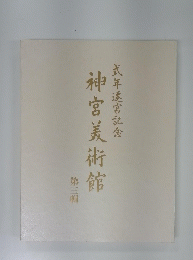 式年遷宮記念
神宮美術館
第三輯